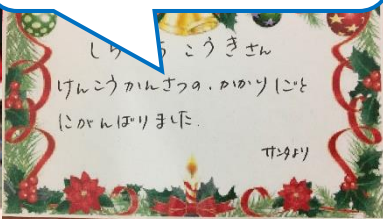 こうきさん
けんこうかんさつの、かかりしごと
にがんばりました.
サンタより